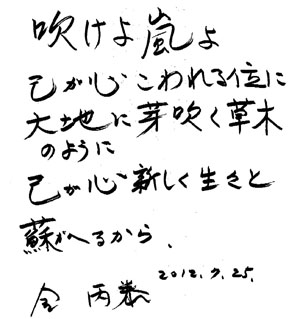 吹けよ嵐よ
己が心こわれる位に
大地に芽吹く草木
のように
己が心新しく生きと
蘇がへるから、
2012.7.25.
金 丙